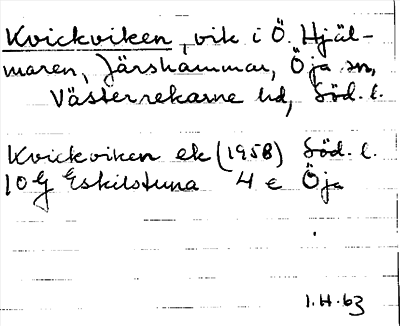 Kvickviken, vik i Ö. Hjäl-
maren, Järshammar, Öja sn,
Västerrekarne hd, Söd. l.
Kvickviken ek (1958) Söd. l.
10 G Eskilstuna 4 e Öja
1.H.63